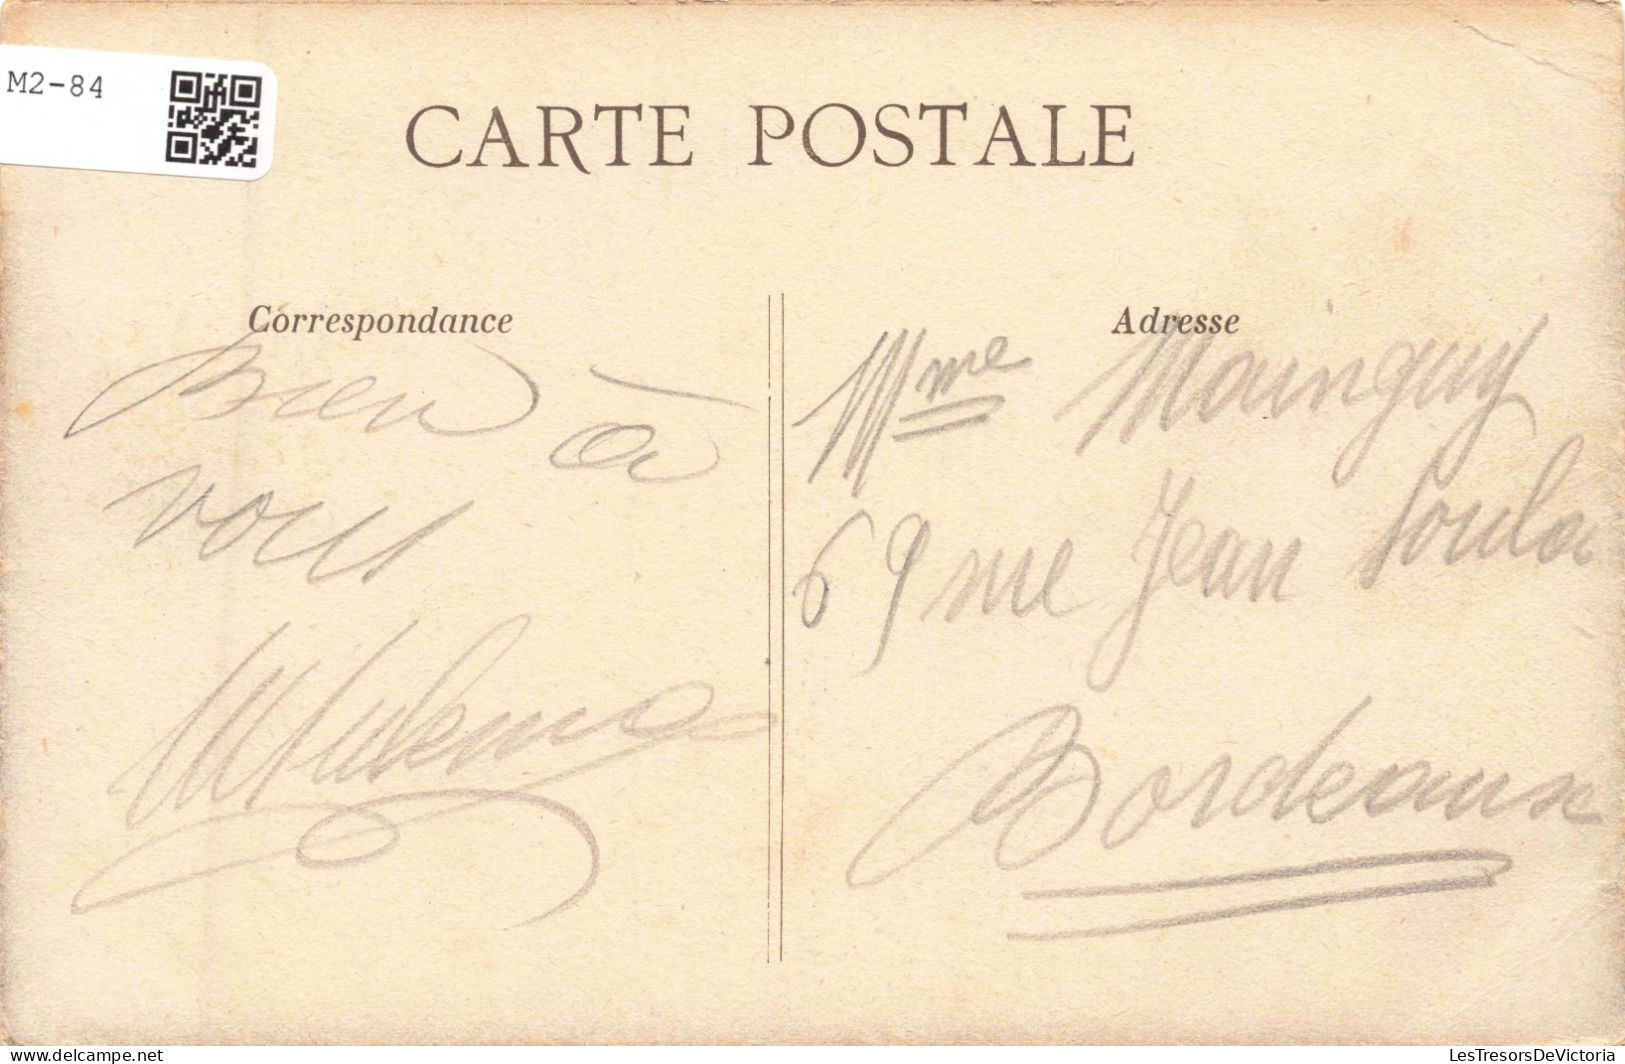 M2-84
CARTE POSTALE
Correspondance
Bien à
vous
Adresse
Mme Mainguy
69 rue Jean Soula
Bordeaux
LesTresorsDeVictoria